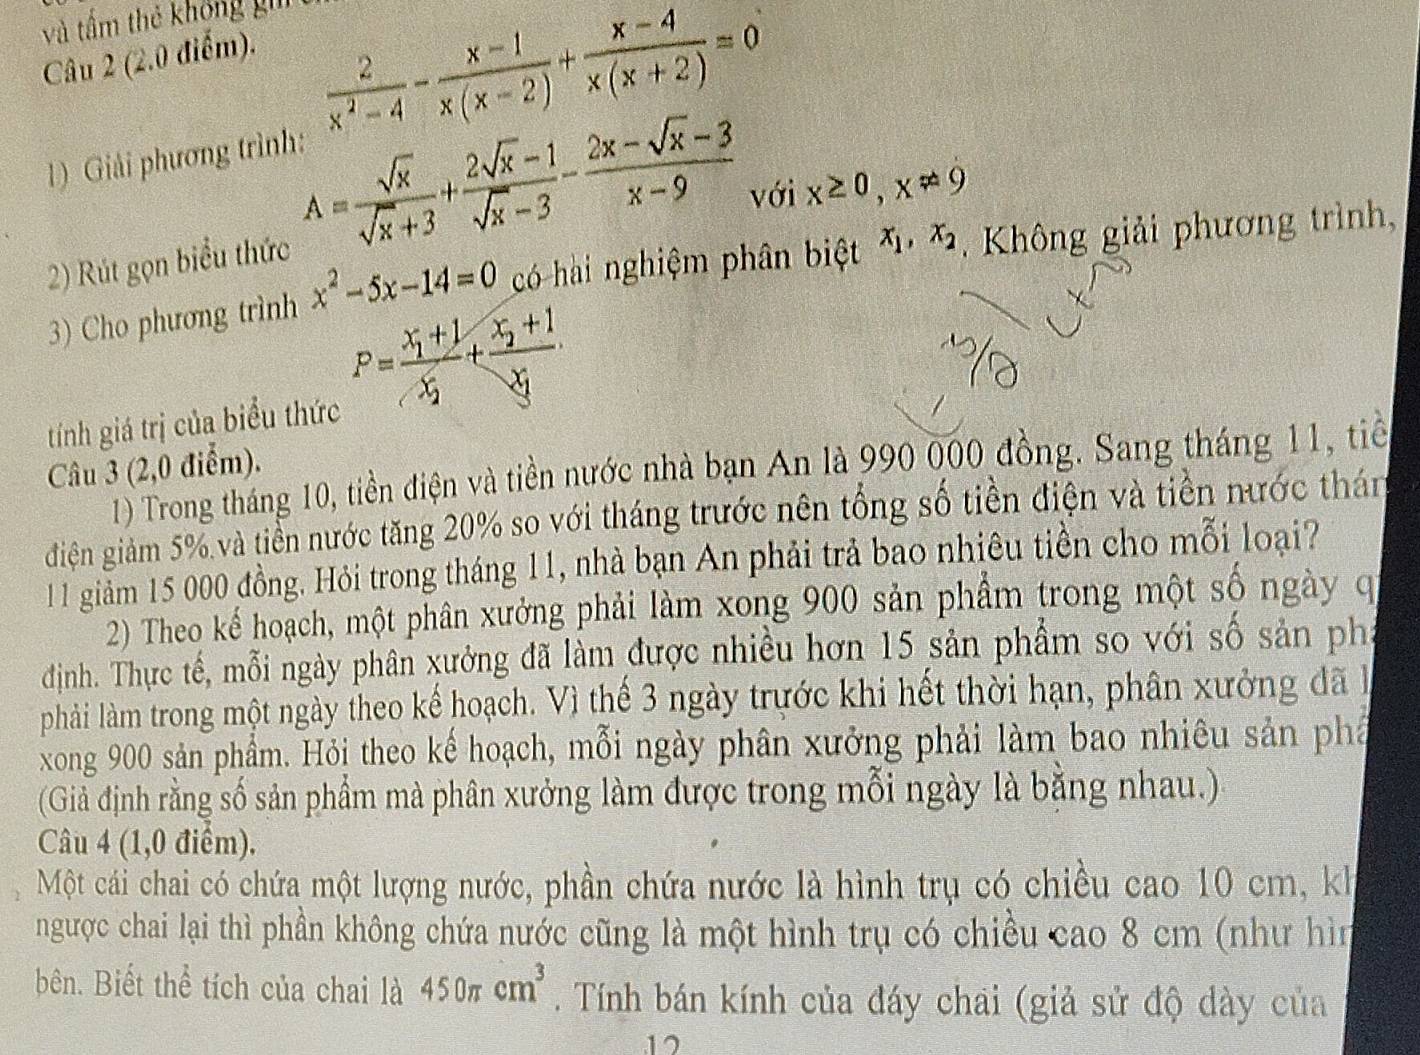 và tấm thẻ không
Câu 2 (2.0 điểm).
1) Giải phương trình: \frac{2}{x^2-4} - \frac{x-1}{x(x-2)} + \frac{x-4}{x(x+2)} = 0
2) Rút gọn biểu thức A = \frac{\sqrt{x}}{\sqrt{x}+3} + \frac{2\sqrt{x}-1}{\sqrt{x}-3} - \frac{2x-\sqrt{x}-3}{x-9} với x ≥ 0, x ≠ 9
3) Cho phương trình x² - 5x - 14 = 0 có hai nghiệm phân biệt x₁, x₂. Không giải phương trình,
tính giá trị của biểu thức P = \frac{x_1+1}{x_2} + \frac{x_2+1}{x_1}.
Câu 3 (2,0 điểm).
1) Trong tháng 10, tiền điện và tiền nước nhà bạn An là 990 000 đồng. Sang tháng 11,
điện giảm 5% và tiền nước tăng 20% so với tháng trước nên tổng số tiền điện và tiền nước
11 giảm 15 000 đồng. Hỏi trong tháng 11, nhà bạn An phải trả bao nhiêu tiền cho mỗi loại?
2) Theo kế hoạch, một phân xưởng phải làm xong 900 sản phẩm trong một số ngày
định. Thực tế, mỗi ngày phân xưởng đã làm được nhiều hơn 15 sản phẩm so với số sản
phải làm trong một ngày theo kế hoạch. Vì thế 3 ngày trước khi hết thời hạn, phân xưởng đã
xong 900 sản phẩm. Hỏi theo kế hoạch, mỗi ngày phân xưởng phải làm bao nhiêu sản
(Giả định rằng số sản phẩm mà phân xưởng làm được trong mỗi ngày là bằng nhau.)
Câu 4 (1,0 điểm).
Một cái chai có chứa một lượng nước, phần chứa nước là hình trụ có chiều cao 10 cm,
ngược chai lại thì phần không chứa nước cũng là một hình trụ có chiều cao 8 cm (như
bên. Biết thể tích của chai là 450π cm³. Tính bán kính của đáy chai (giả sử độ dày của